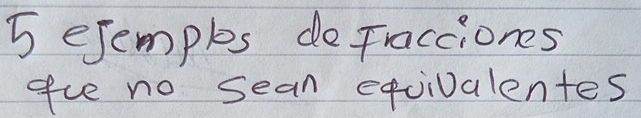 5 ejemplos de Fracciones
que no sean equivalentes